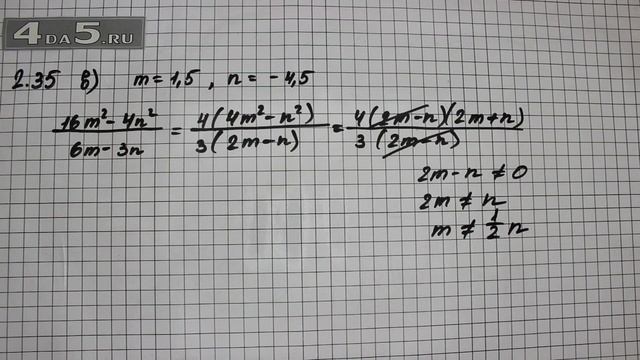 4DA5.RU
2.35 в) m = 1,5 , n = -4,5
(16m² - 4n²)/(6m - 3n) = 4(4m² - n²)/3(2m - n) = 4(2m - n)(2m + n)/3(2m - n)
2m - n ≠ 0
2m ≠ n
m ≠ 1/2 n